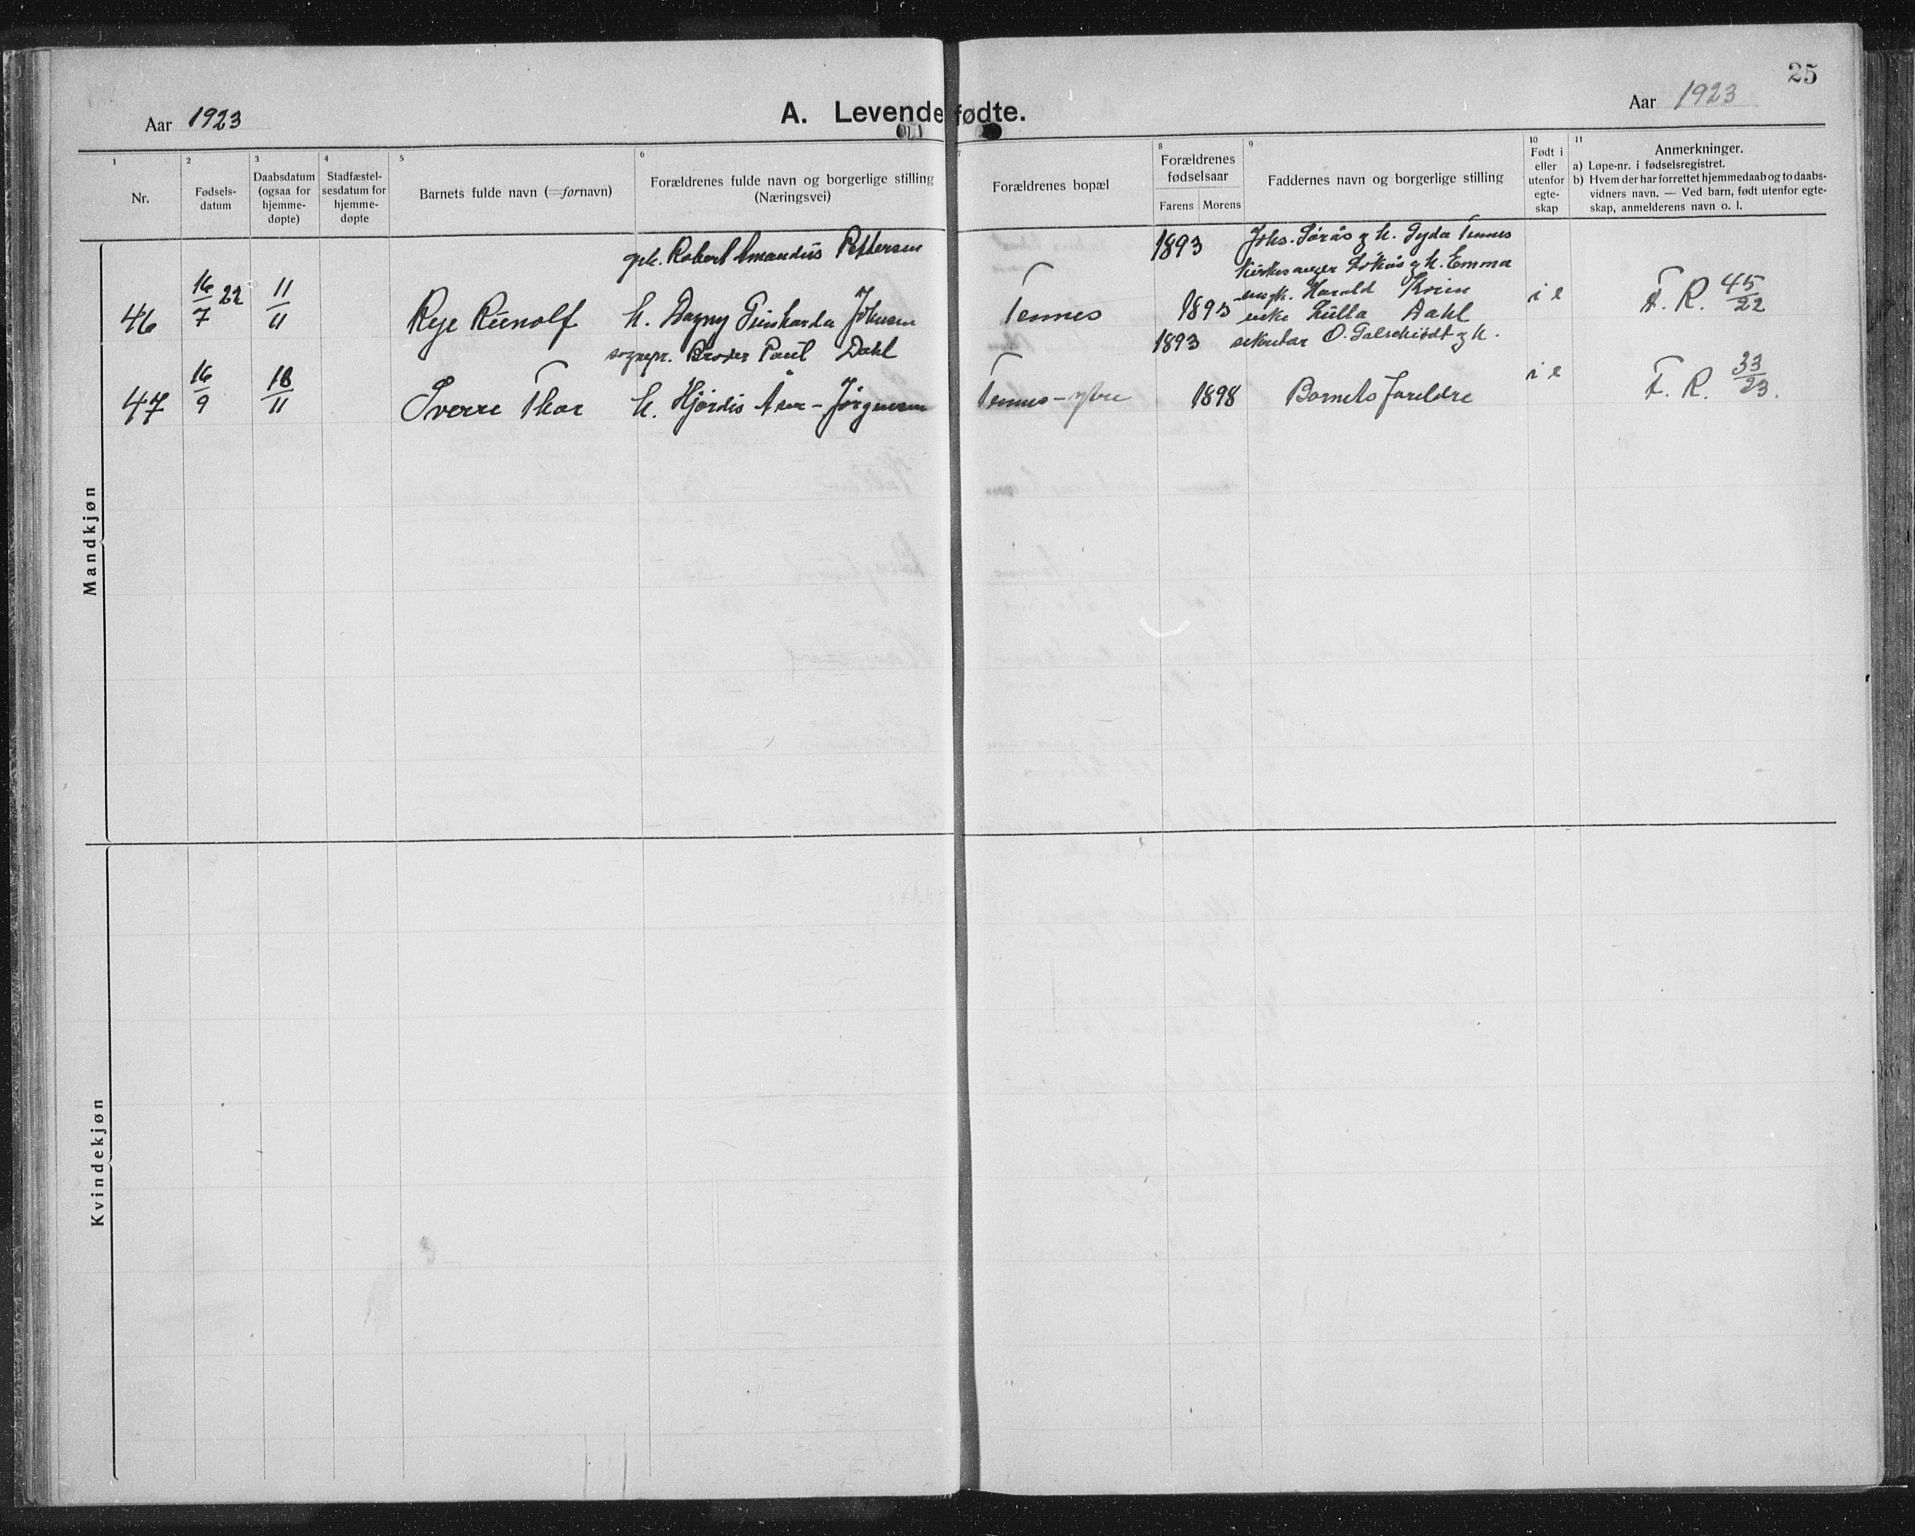 25
Aar 1923
A. Levendefødte.
Aar 1923
1 2 3 4 5 6 7 8 9 10 11
Nr.
Fødsels-
datum
Daabsdatum
(ogsaa for
hjemme-
døpte)
Stadfæstel-
sesdatum for
hjemme-
døpte
Barnets fulde navn (=fornavn)
Forældrenes fulde navn og borgerlige stilling
(Næringsvei)
Forældrenes bopæl
Forældrenes
fødselsaar
Farens Morens
Faddernes navn og borgerlige stilling
Født i
eller
utenfor
egte-
skap
Anmerkninger.
a) Løpe-nr. i fødselsregistret.
b) Hvem der har forrettet hjemmedaab og to daabs-
vidners navn. — Ved barn, født utenfor egte-
skap, anmelderens navn o. l.
Mandkjøn
46
16/7 22
11/11
Reje Runolf
Robert Amandus Pettersen
h. Dagny Johnsen
Tennes
1893
1893
Johs. g h. Gyda Tennes
Kirkesanger g h. Emma
ungk. Harald
enke Lulla Dahl
i e
F. R. 45/22
47
16/9
18/11
Sverre Thor
sognepr. Broder Paul Dahl
h. Hjørdis Åser-Jørgensen
Tennes-ytre
1893
1898
sekretær O. Galschiødt g h.
Barnets foreldre
i e
F. R. 33/23.
Kvindekjøn